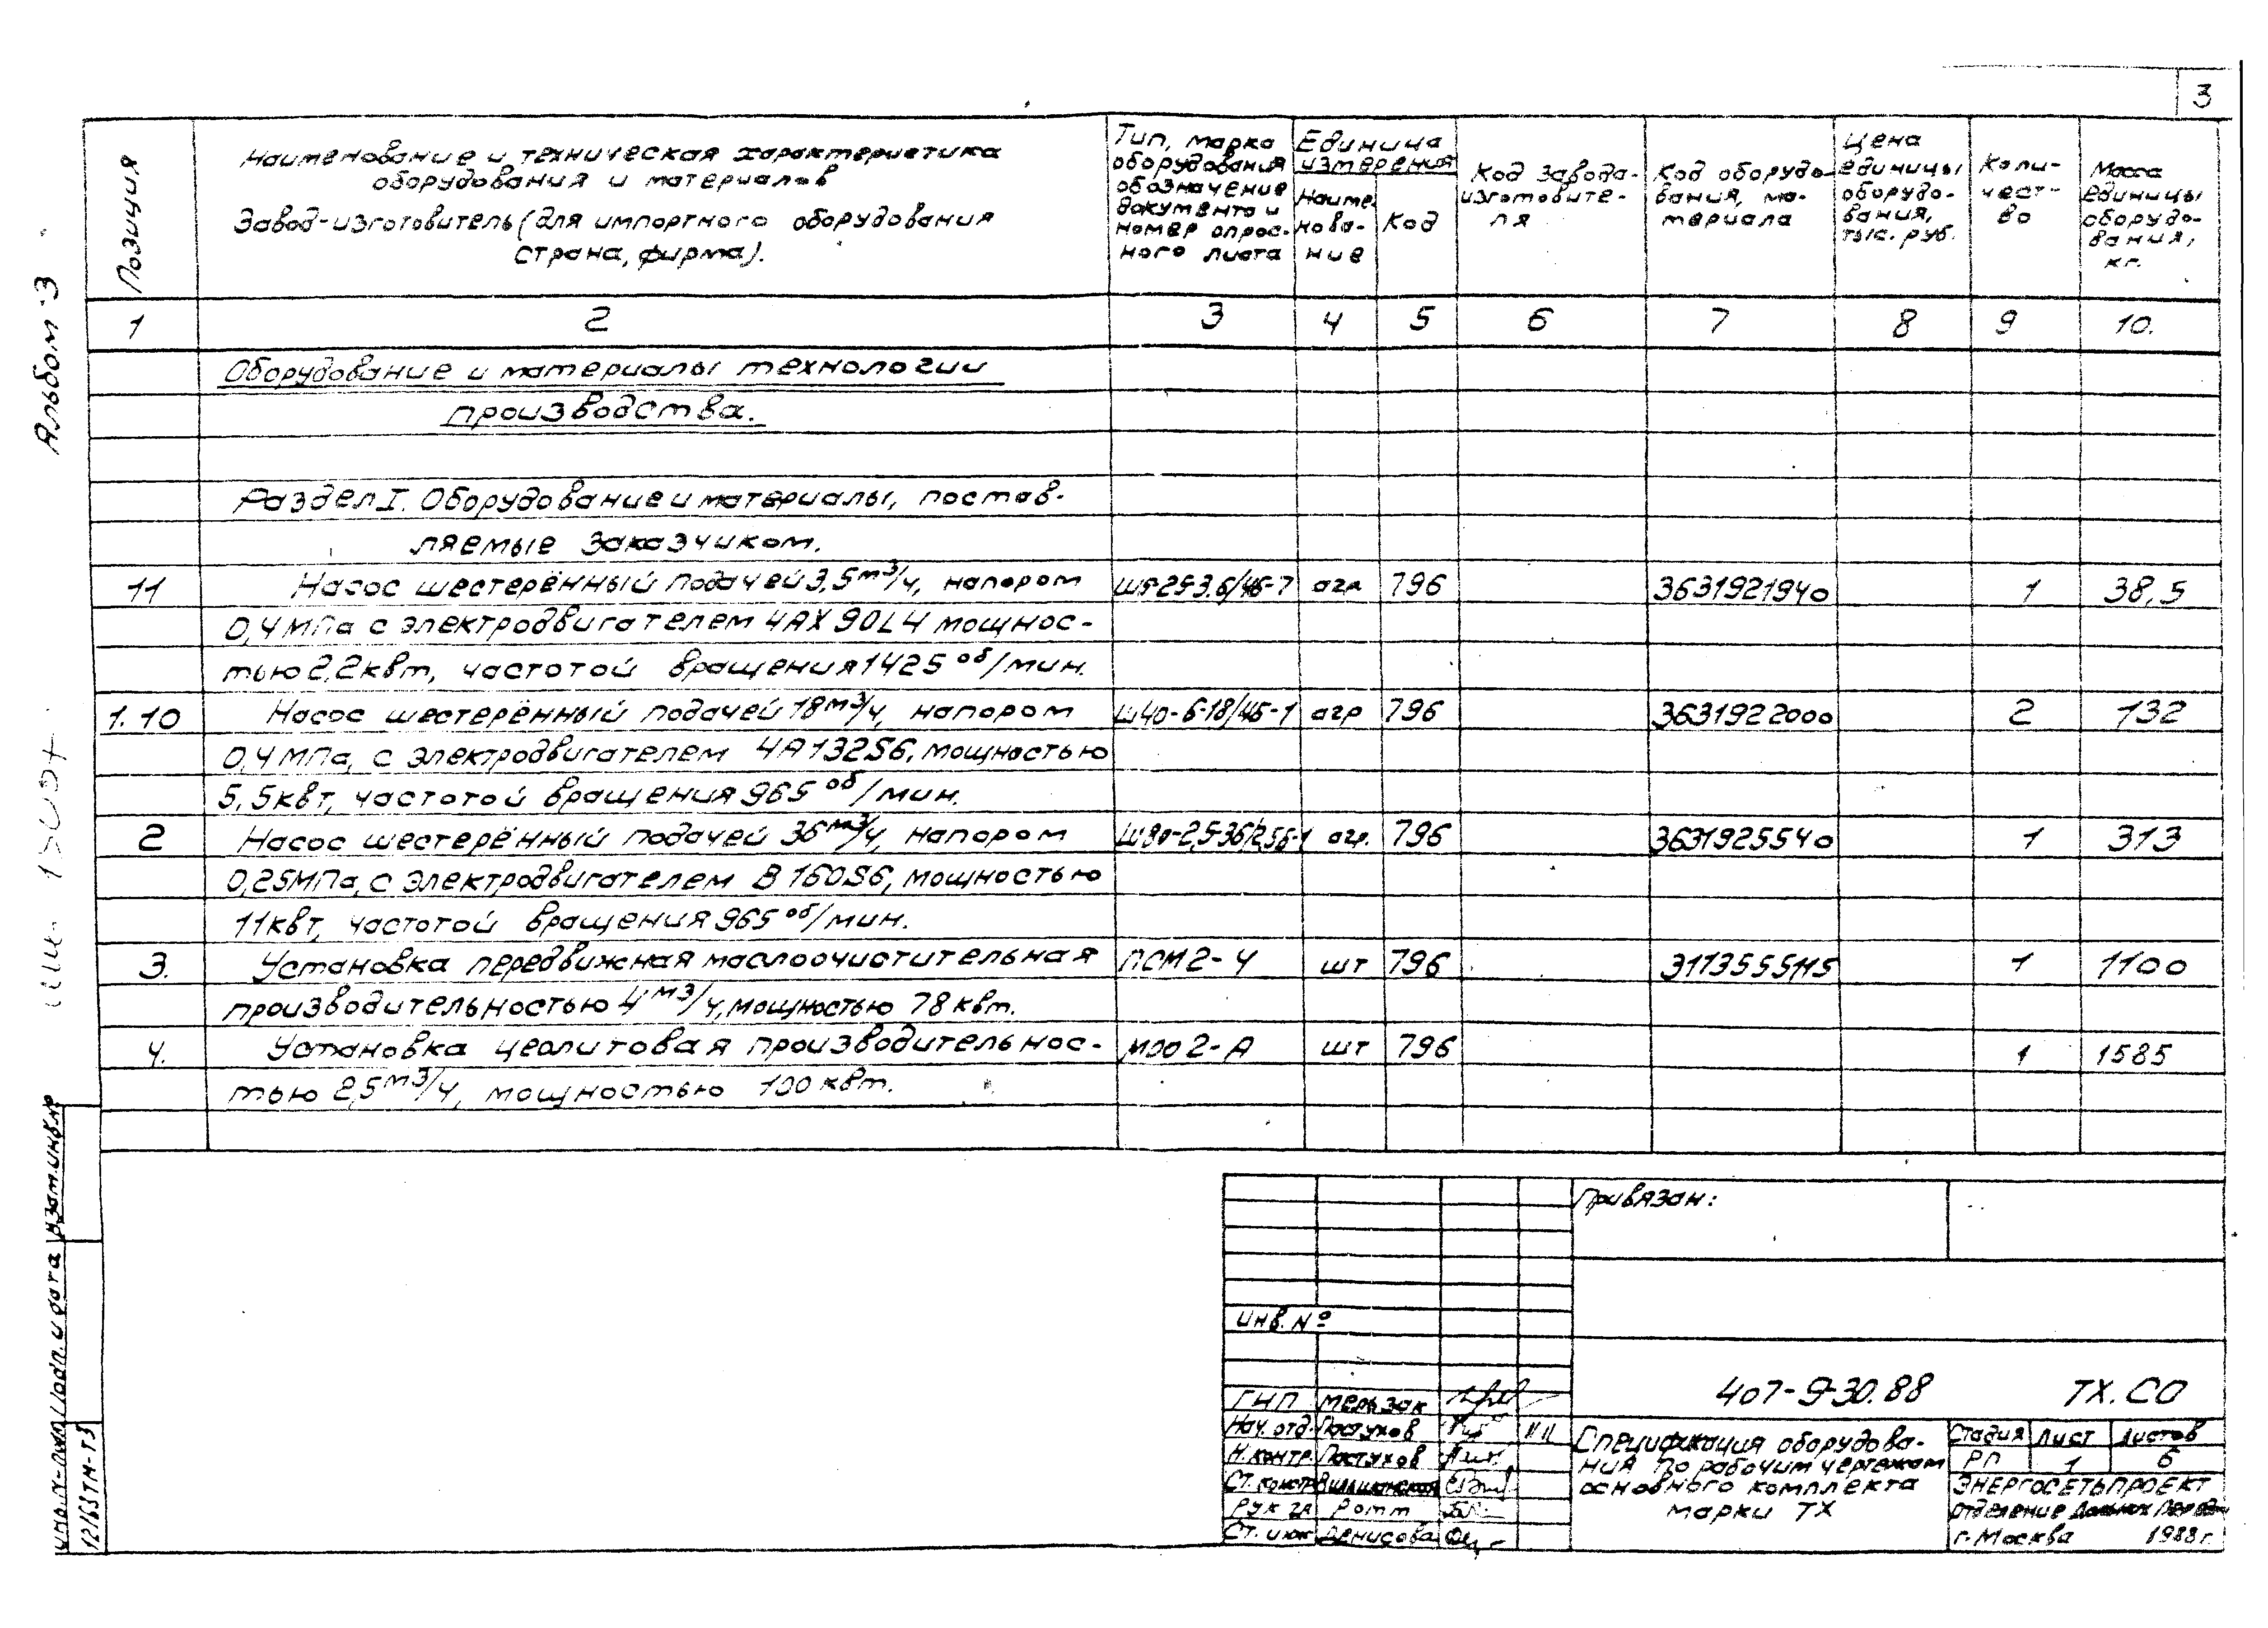 3
Альбом 3
Позиция
Наименование и техническая характеристика
оборудования и материалов
Завод-изготовитель (для импортного оборудования
страна, фирма).
Тип, марка
оборудования
обозначение
документа и
номер опрос-
ного листа
Единица
измерения
Наиме-
нова-
ние
Код
Код завода-
изготовите-
ля
Код оборудо-
вания, ма-
териала
Цена
единицы
оборудо-
вания,
тыс. руб.
Коли-
чест-
во
Масса
единицы
оборудо-
вания,
кг.
1 2 3 4 5 6 7 8 9 10.
Оборудование и материалы технологии
производства.
Раздел I. Оборудование и материалы, постав-
ляемые заказчиком.
11 Насос шестерённый подачей 3,5 м3/ч, напором Ш5-25-3.6/4Б-7 агр 796 3631921940 1 38,5
0,4 МПа с электродвигателем 4АХ90L4 мощнос-
тью 2,2квт, частотой вращения 1425 об/мин.
1.10 Насос шестерённый подачей 18 м3/ч, напором Ш40-6-18/4Б-1 агр 796 3631922000 2 132
0,4 МПа, с электродвигателем 4А132S6, мощностью
5,5квт, частотой вращения 965 об/мин.
2 Насос шестерённый подачей 36 м3/ч, напором Ш80-2,5-36/2,5Б-1 агр. 796 3631925540 1 313
0,25МПа, с электродвигателем В160S6, мощностью
11квт, частотой вращения 965 об/мин.
3. Установка передвижная маслоочистительная ПСМ2-4 шт 796 3113555115 1 1100
производительностью 4 м3/ч, мощностью 78квт.
4. Установка цеолитовая производительнос- 2-А шт 796 1 1585
тью 2,5 м3/ч, мощностью 100 квт.
Взам.инв.№
Подп. и дата
Инв.№ подл.
12163ТМ-Т3
Привязан:
Инв. №
407-9-30.88 ТХ.СО
ГИП Мерзак
Нач. отд. Пастухов
Н. контр. Пастухов
Ст. констр
Рук гр Ротт
Ст. инж Денисова
Спецификация оборудова-
ния по рабочим чертежам
основного комплекта
марки ТХ
Стадия Лист Листов
РП 1 6
ЭНЕРГОСЕТЬПРОЕКТ
Отделение Дальних Передач
г. Москва 1988г.